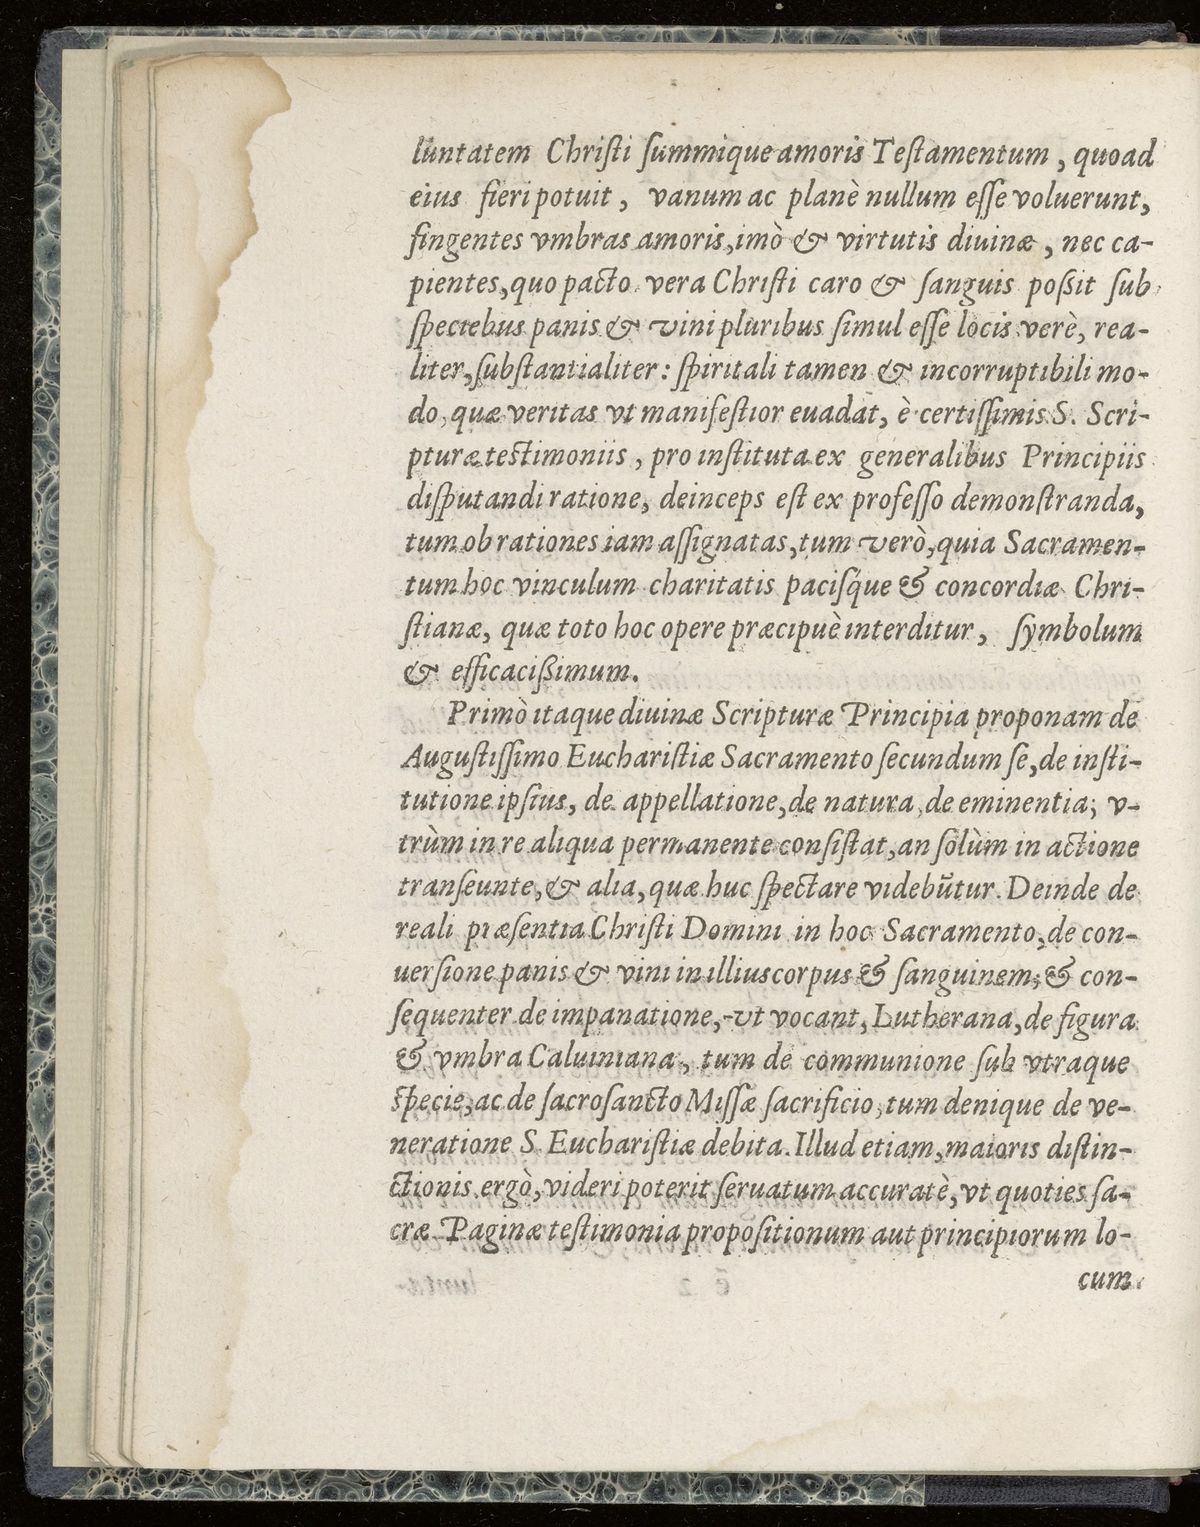 luntatem Christi summique amoris Testamentum, quoad
eius fieri potuit, vanum ac planè nullum esse voluerunt,
fingentes vmbras amoris, imò & virtutis diuinæ, nec ca-
pientes, quo pacto vera Christi caro & sanguis possit sub
speciebus panis & vini pluribus simul esse locis verè, rea-
liter, substantialiter: spiritali tamen & incorruptibili mo-
do, quæ veritas vt manifestior euadat, è certissimis S. Scri-
pturæ testimoniis, pro instituta ex generalibus Principiis
disputandi ratione, deinceps est ex professo demonstranda,
tum ob rationes iam assignatas, tum verò, quia Sacramen-
tum hoc vinculum charitatis pacisq́ue & concordiæ Chri-
stianæ, quæ toto hoc opere præcipuè interditur, symbolum
& efficacissimum.
Primò itaque diuinæ Scripturæ Principia proponam de
Augustissimo Eucharistiæ Sacramento secundum se, de insti-
tutione ipsius, de appellatione, de natura, de eminentia; v-
trùm in re aliqua permanente consistat, an sòlùm in actione
transeunte, & alia, quæ huc spectare videbũtur. Deinde de
reali præsentia Christi Domini in hoc Sacramento, de con-
uersione panis & vini in illius corpus & sanguinem; & con-
sequenter de impanatione, vt vocant, Lutherana, de figura
& vmbra Caluiniana, tum de communione sub vtraque
specie, ac de sacrosancto Missæ sacrificio, tum denique de ve-
neratione S. Eucharistiæ debita. Illud etiam, maioris distin-
ctionis ergò, videri poterit seruatum accuratè, vt quoties sa-
cræ Paginæ testimonia propositionum aut principiorum lo-
cum